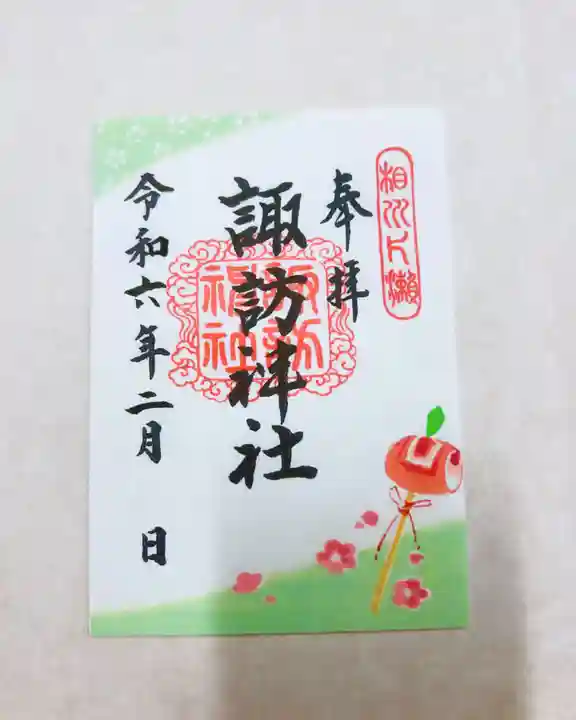 相州片瀬
奉拝
諏訪神社
諏訪
神社
令和六年二月 日